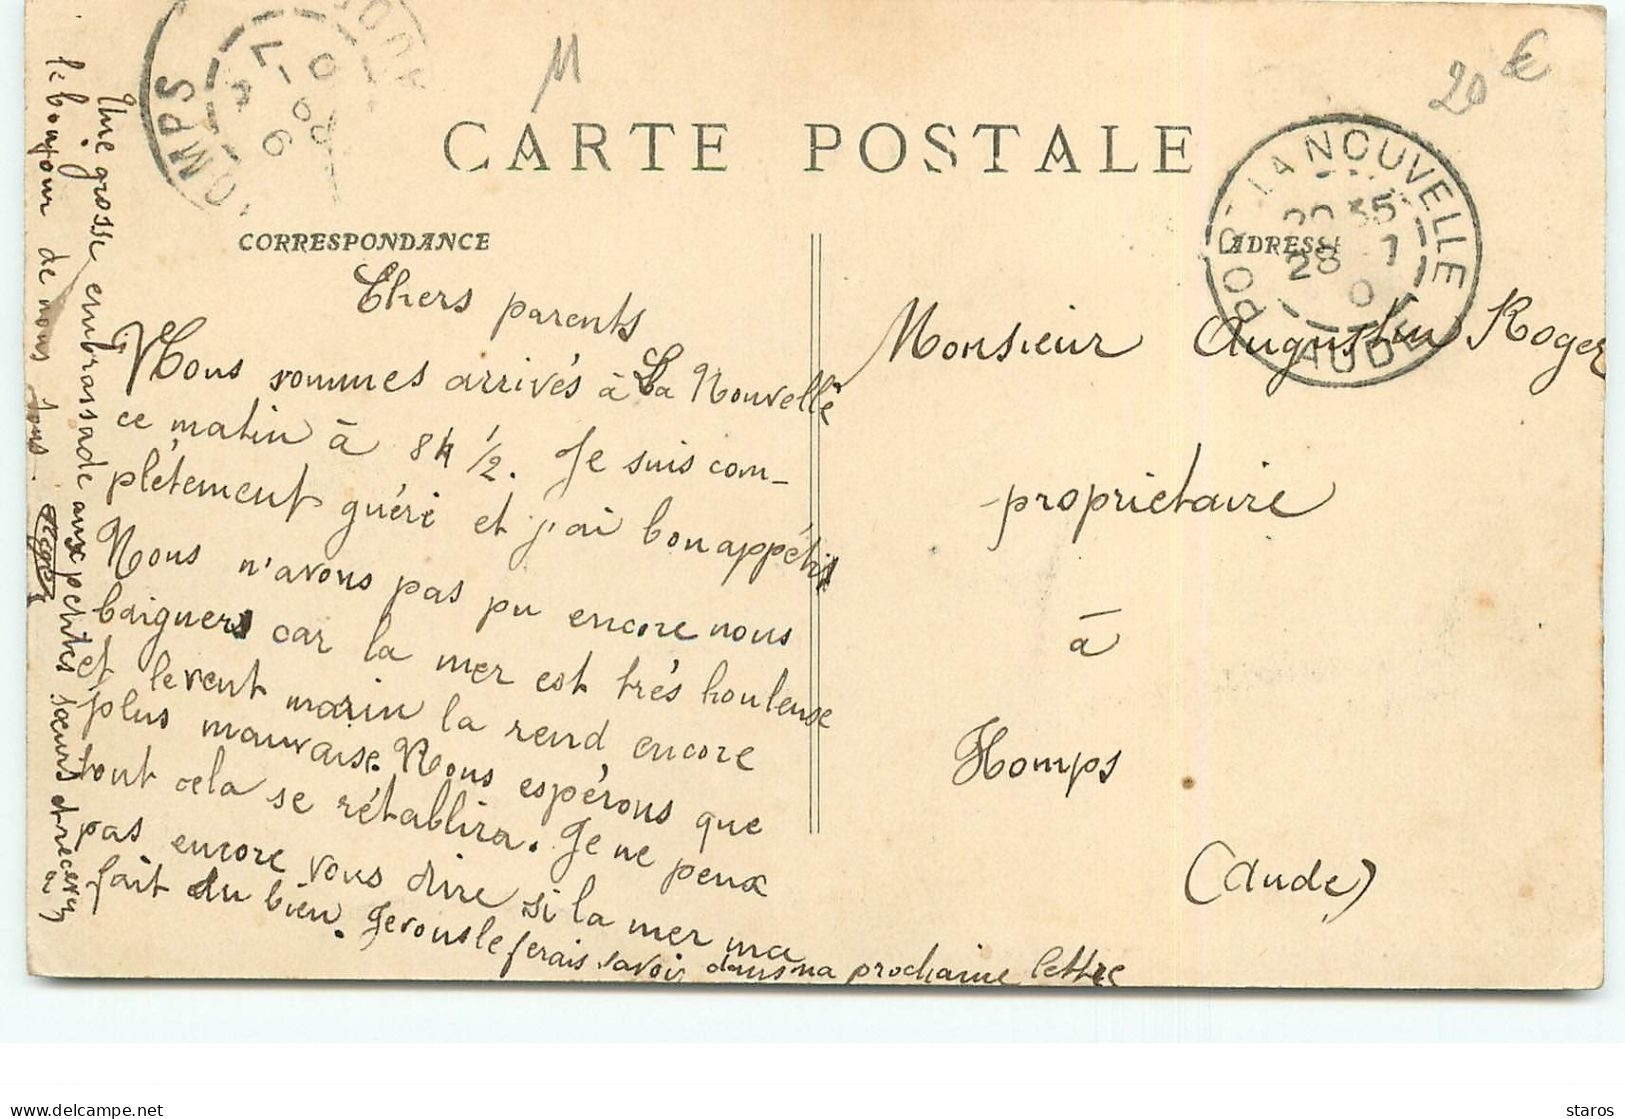 11
20 €
CARTE POSTALE
CORRESPONDANCE
ADRESSE
HOMPS
AUDE
LA NOUVELLE
AUDE
28 7
Chers parents
Nous sommes arrivés à La Nouvelle
ce matin à 8h 1/2. Je suis com-
plètement guéri et j'ai bon appétit
Nous n'avons pas pu encore nous
baigners car la mer est très houleuse
et le vent marin la rend encore
plus mauvaise. Nous espérons que
tout cela se rétablira. Je ne peux
pas encore vous dire si la mer ma
fait du bien. Je vous le ferais savoir dans ma prochaine lettre
Une grosse embrassade aux petites sœurs et recevez
le bonjour de nous tous.
Roger
Monsieur Augustin Roger
propriétaire
à
Homps
(Aude)
delcampe.net
staros